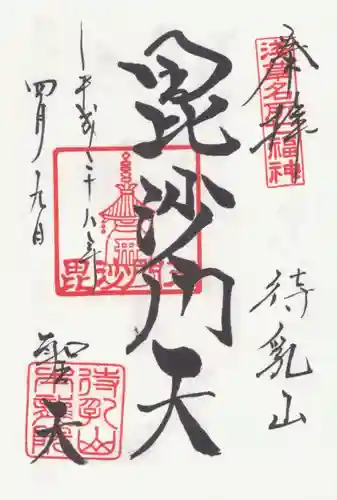 奉拝
浅草名所七福神
待乳山
毘沙門天
毘沙門天
平成二十八年
四月九日
聖天
待乳山